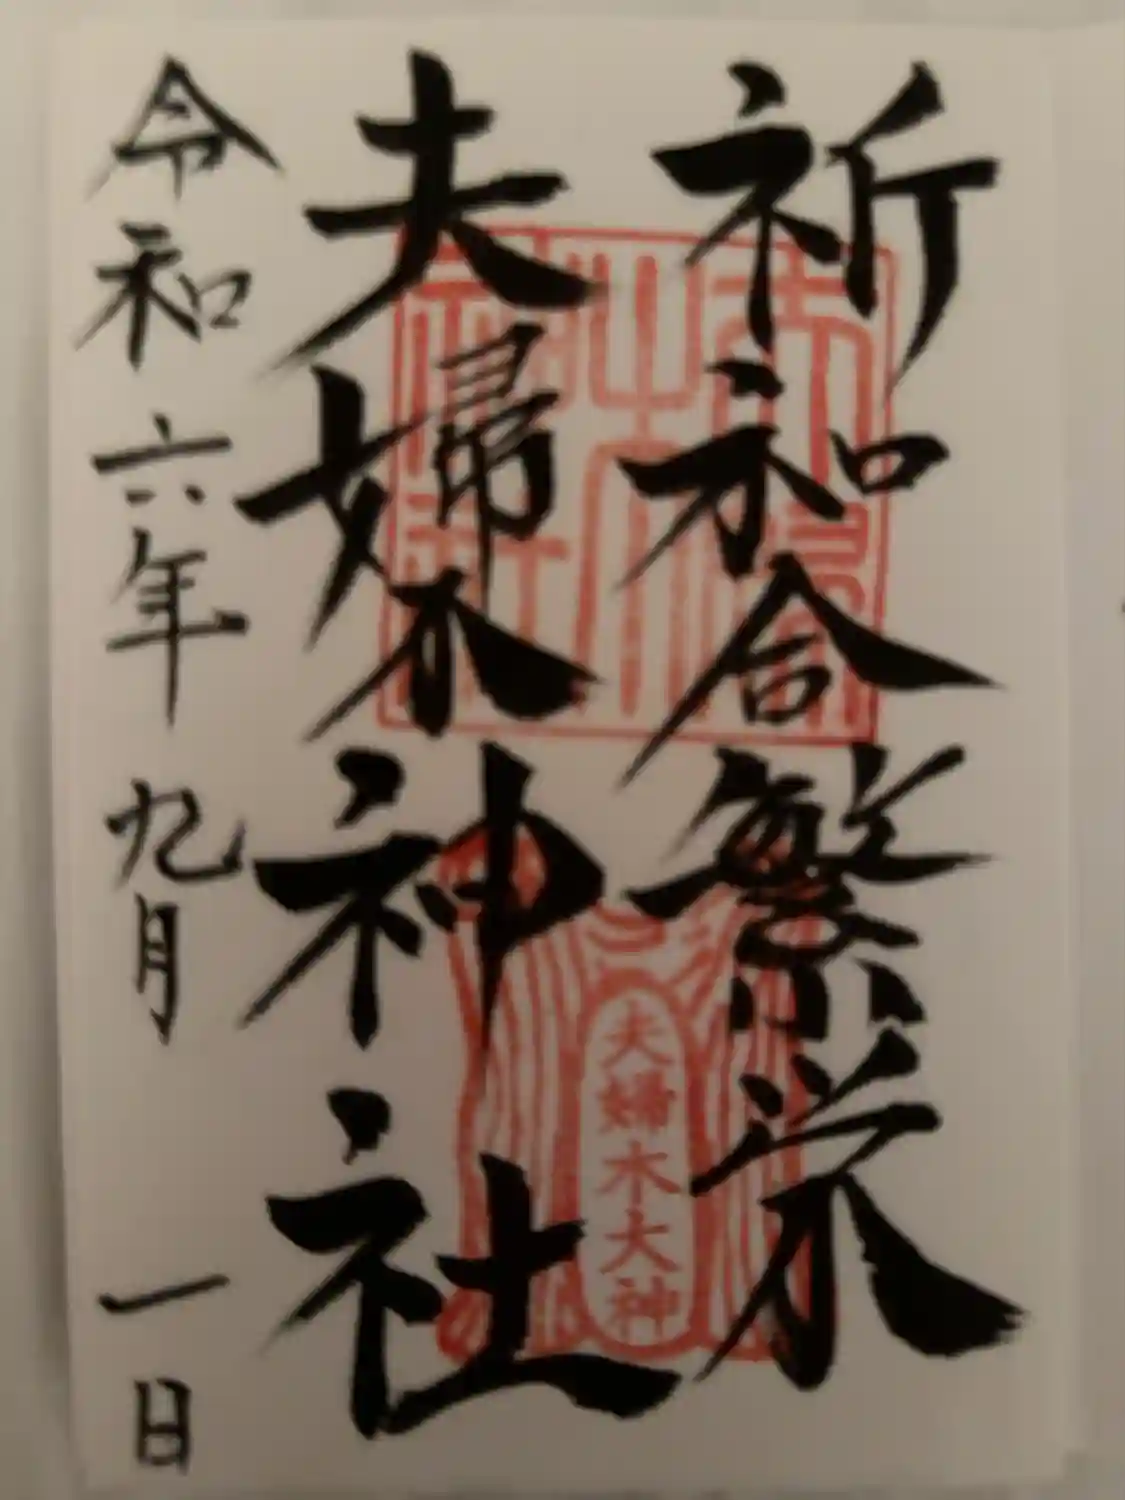 祈和合繁栄
夫婦木神社
令和六年九月一日
夫婦木大神